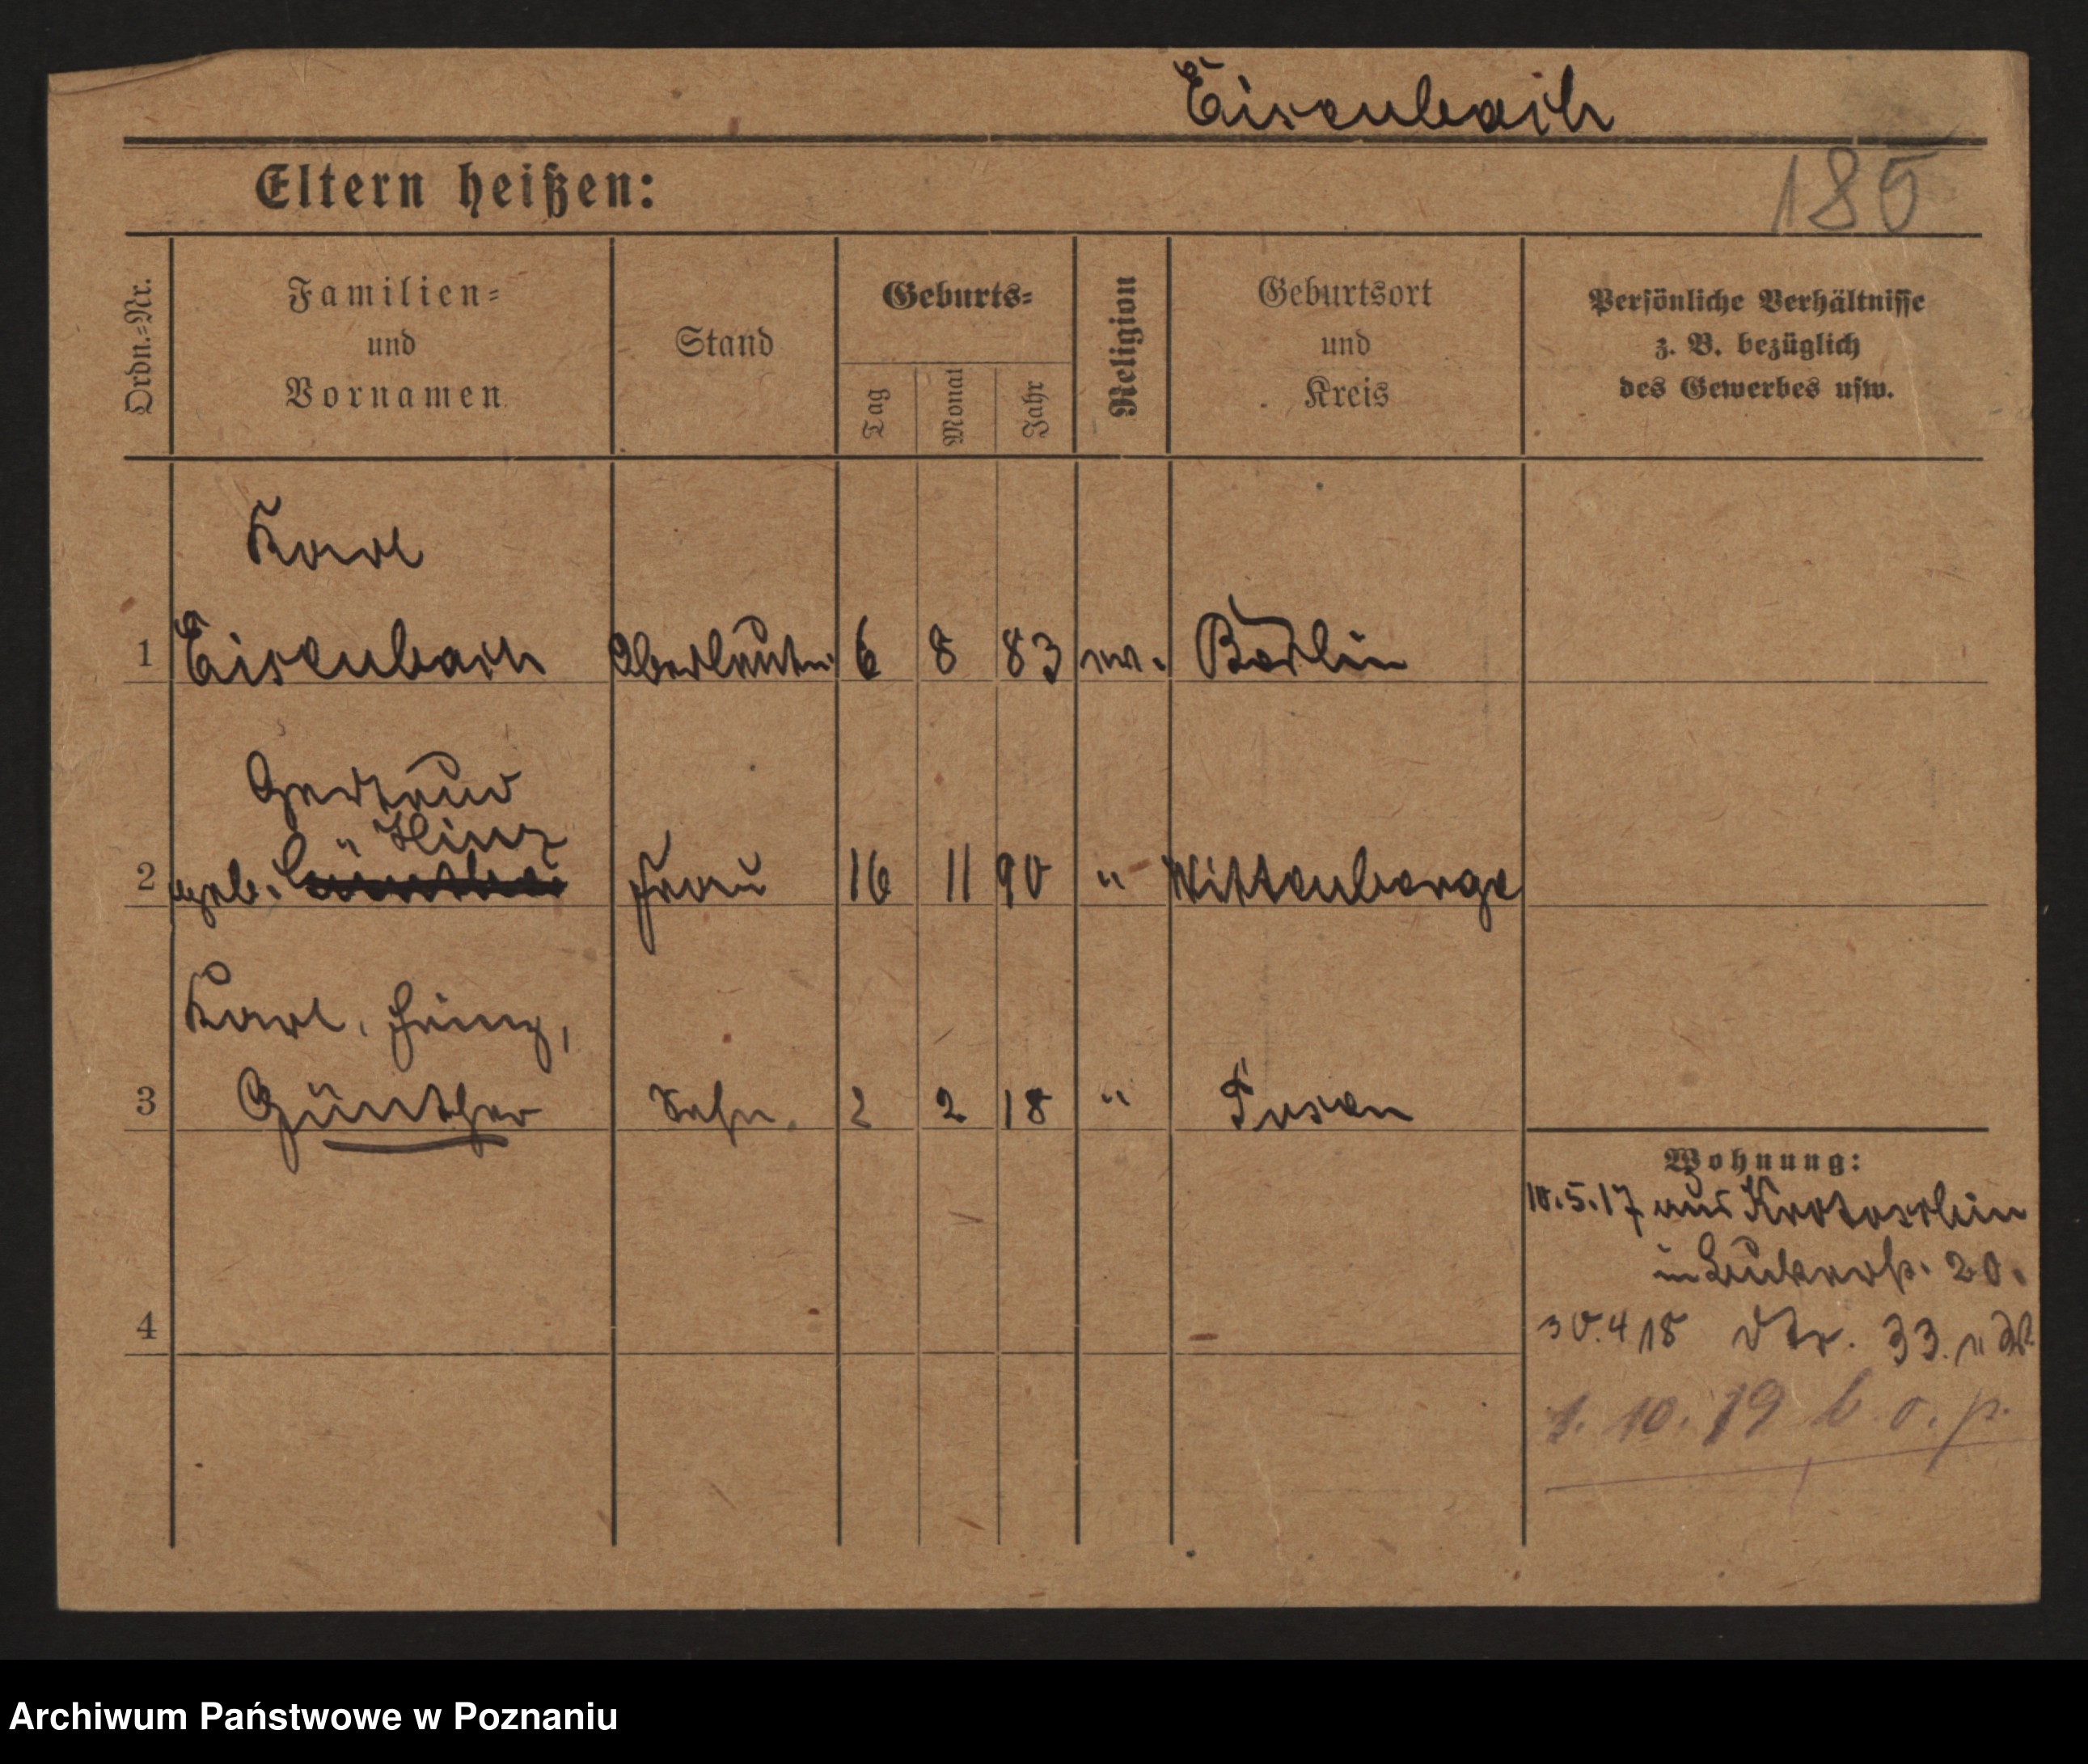 Eisenbach
Eltern heißen:
185
Ordn.=Nr.
Familien=
und
Vornamen
Stand
Geburts=
Tag
Monat
Jahr
Religion
Geburtsort
und
Kreis
Persönliche Verhältnisse
z. B. bezüglich
des Gewerbes usw.
Karl
1 Eisenbach Oberleutn. 6 8 83 Berlin
Gertrud
Hinz
2 geb. Günther Frau 16 11 90 " Wittenberge
Karl, Heinz,
3 Günther Sohn 2 2 18 " Posen
Wohnung:
10.5.17 aus Krotoschin
in 20.
4
30.4 18 33.
1. 10. 19 b. o. p.
Archiwum Państwowe w Poznaniu